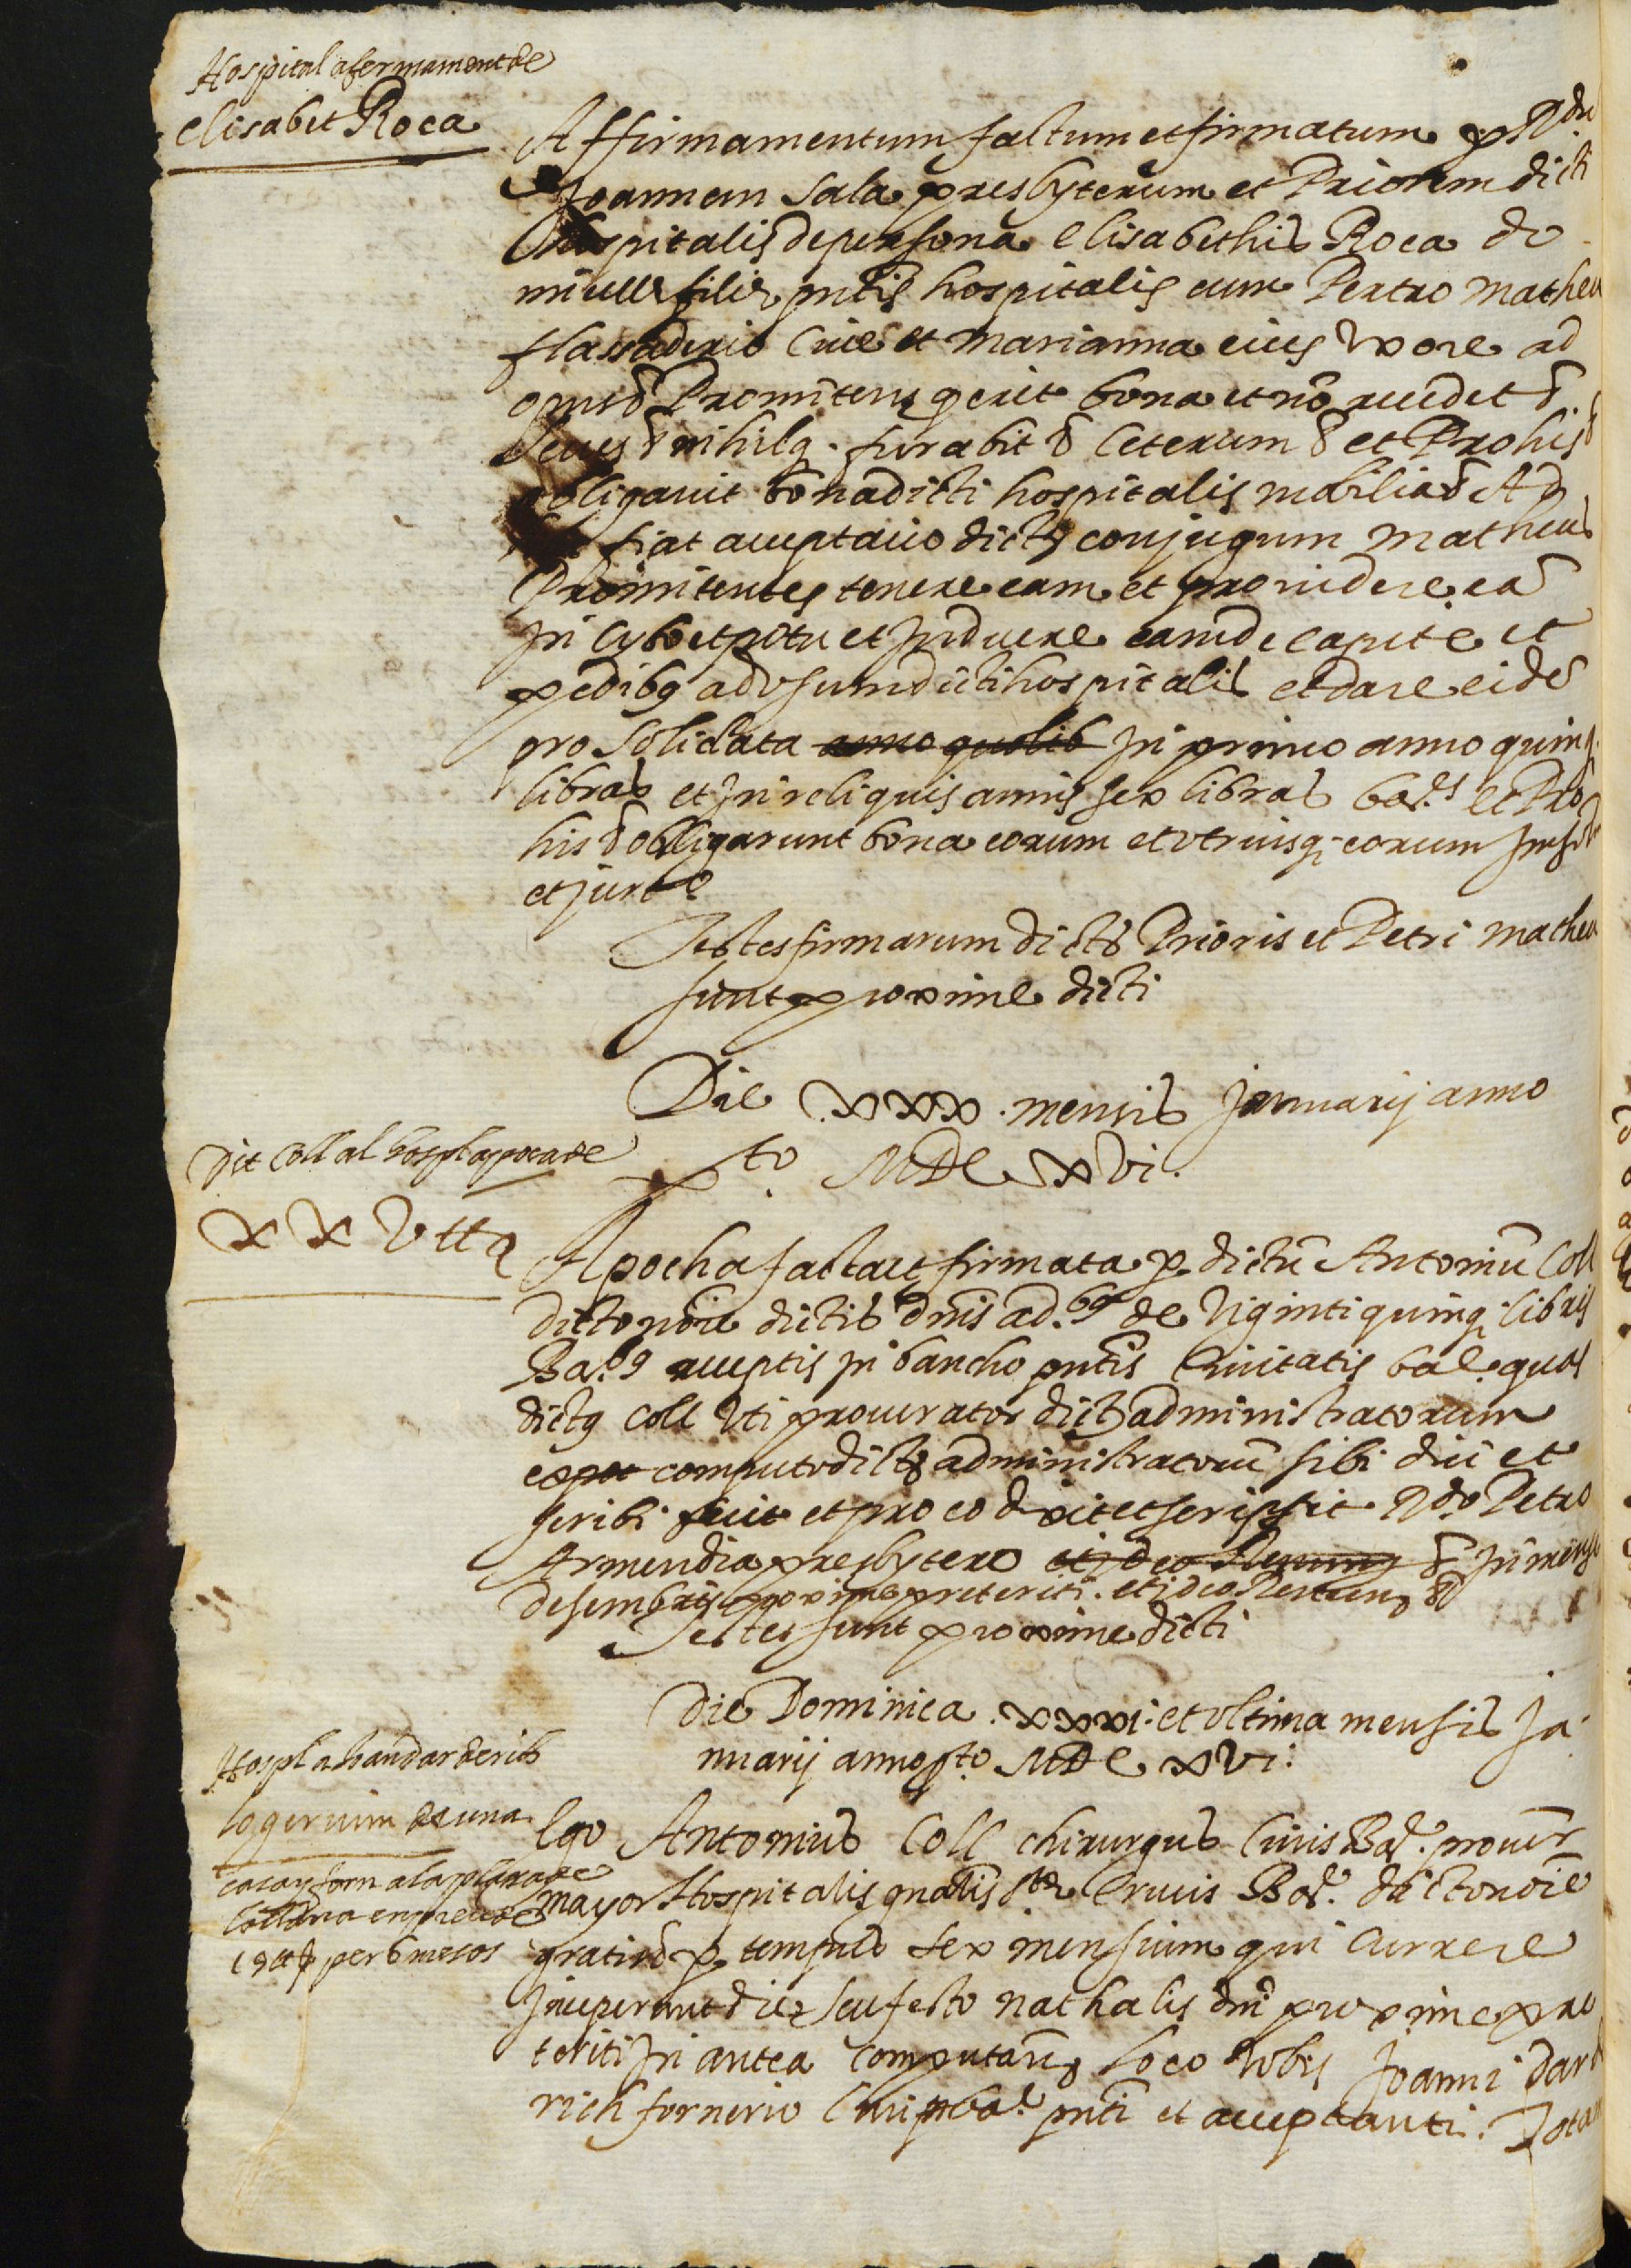 Hospital afermament de
Elisabet Roca
Affirmamentum factum et firmatum p Rdu
Joannem Sala presbyterum et Priorem dicti
Hospitalis de persona Elisabethis Roca do
micelle filie pntis hospitalis cum Petro Matheu
flassaderio Cive et Marianna eius uxore ad
opus Promitens q erit bona et no recedet
nihilq. furabit Ceterum et Pro his
obligavit bona dicti hospitalis mobilia Ad
fiat acceptatio dictor conjugum Matheus
Promitentes tenere eam et providere ea
in Cybo et potu et induere eam de capite et
pedibq ad usum dicti hospitalis et dare eide
pro solidata anno quolib in primo anno quinq.
libras et in reliquis annis sex libras bar.s et Pro
his obligarunt bona eorum et utriusq. eorum insol
et jur
Testes firmarum dictor Prioris et Petri Matheu
sunt proxime dicti
Die xxx. mensis Januarij anno
pto. MDCxvi.
Dit Coll al hospl apoca de
xxv ll a
Apocha facta et firmata p. dictu Antoniu Coll
dicto noie dictis dnis ad.bq de Viginti quinq. libris
Bar.q acceptis in bancho pntis Civitatis bar. quas
dictq Coll Uti procurator dictor administratorum
ex pec computo dictor administratoru sibi dici et
scribi fecit et pro eo dixit et scripsit Rdo. Petro
Armendia presbytero et ideo Renuns in mense
desembris proxime preteriti. et ideo Renuns
Testes sunt proxime dicti
Die Dominica .xxxi. et ultima mensis Ja
nuarij anno pto. MDCxvi.
Hospl a han dar derich
logerium de una
casa y forn a la plasa de
per 6 mesos
Ego Antonius Coll chirurgus Civis Bar. procur
mayor Hospitalis gnalis ste Crucis Bar. dicto noie
gratis p. tempus sex mensium qui Currere
inceperunt die seu festo nathalis dni proxime pre
teriti in antea Computan loco vobis Joanni dar
rich fornerio Civi Bar. pnti et acceptanti. Totam